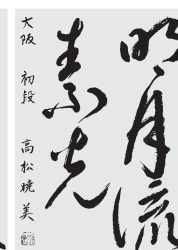 明月流
素光
大阪 初段 高松暁美